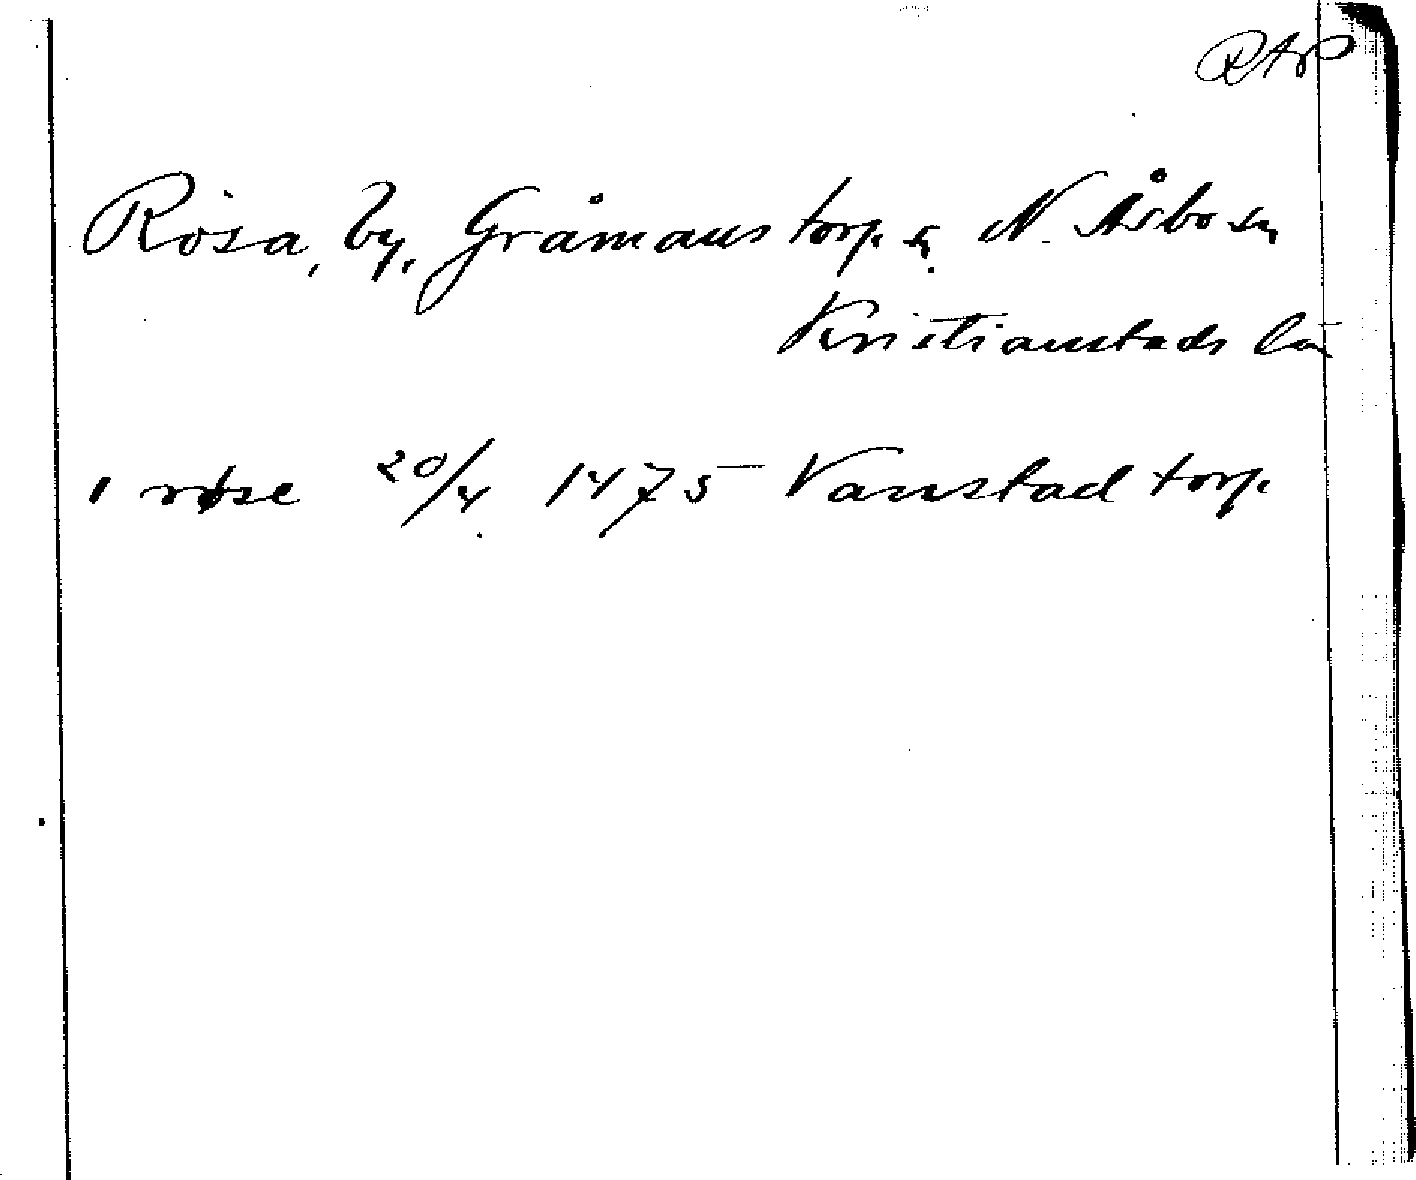 RAP
Rösa, by, Gråmanstorps sn. N. Åsbo hd
Kristianstads län
i røse 20/4 1475 Vanstadtorp